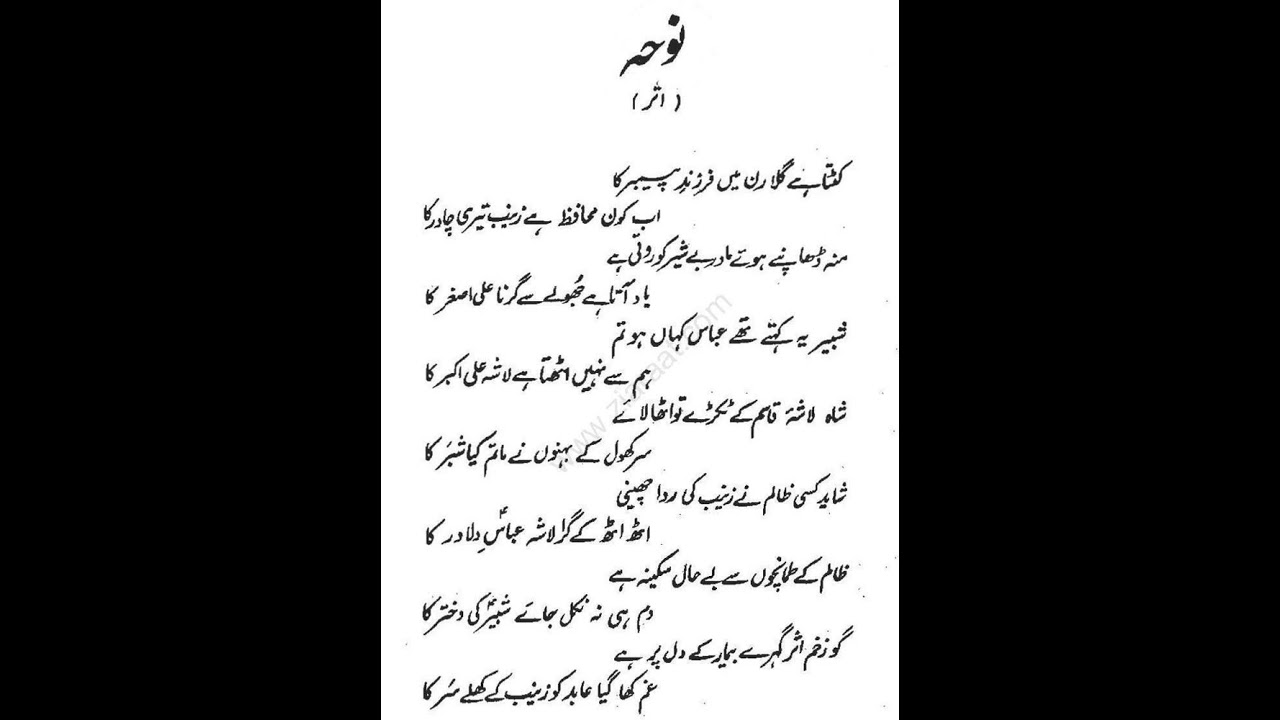 نوحہ
(اثر)
کٹتا ہے گلا رن میں فرزندِ پیمبر کا
اب کون محافظ ہے زینب تیری چادر کا
منہ ڈھانپے ہوئے مادر بے شیر کو روتی ہے
یاد آتا ہے جُھولے سے گرنا علی اصغر کا
شبیر یہ کہتے تھے عباس کہاں ہو تم
ہم سے نہیں اٹھتا ہے لاشہ علی اکبر کا
شاہ لاشۂ قاسم کے ٹکڑے تو اٹھا لائے
سر کھول کے بہنوں نے ماتم کیا شبّر کا
شاید کسی ظالم نے زینب کی ردا چھینی
اٹھ اٹھ کے گرا لاشہ عباسؑ دلاور کا
ظالم کے طمانچوں سے بے حال سکینہ ہے
دم ہی نہ نکل جائے شبیرؑ کی دختر کا
گو زخم اثر گہرے بیمار کے دل پر ہے
غم کھا گیا عابد کو زینب کے کھلے سر کا
www.ziaraat.com